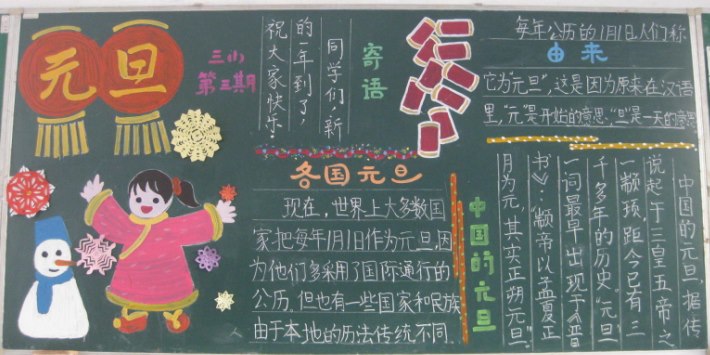 元旦
第三期
寄语
同学们,新
的一年到了,
祝大家快乐.
由来
每年公历的1月1日,人们称
它为"元旦",这是因为原来在汉语
里,"元"是开始的意思,"旦"是一天的意思.
各国元旦
现在,世界上大多数国
家把每年1月1日作为元旦,因
为他们多采用了国际通行的
公历.但也有一些国家和民族
由于本地的历法传统不同.
中国的元旦
中国的元旦,据传
说起于三皇五帝之
一颛顼,距今已有三
千多年的历史."元旦"
一词最早出现于《晋
书》:"颛帝以孟夏正
月为元,其实正朔元旦"